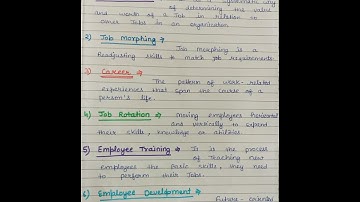 of determining the value
and worth of a Job in relation to
other Jobs in an organization
2) Job Morphing →
Job morphing is a
Readjusting skills to match job requirements.
3) Career →
The pattern of work-related
experiences that span the course of a
person's life.
4) Job Rotation → Moving employees horizontal
and vertically to expand
their skills, knowledge or abilities.
5) Employee Training → It is the process
of Teaching new
employees the basic skills, they need
to perform their Jobs.
6) Employee Development →
Future-oriented